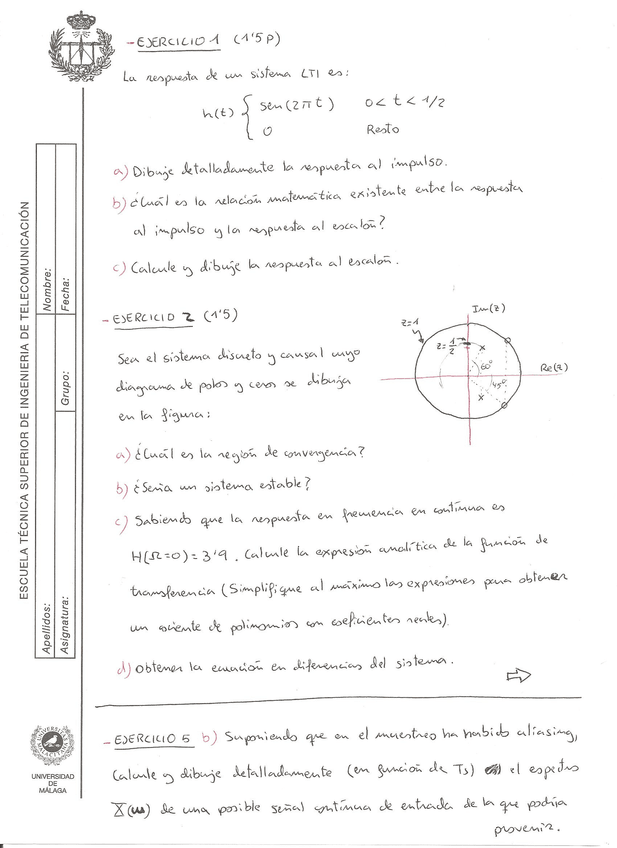 - EJERCICIO 1 (1'5 P)
La respuesta de un sistema LTI es:
h(t) { sen(2πt) 0 < t < 1/2
0 Resto
a) Dibuje detalladamente la respuesta al impulso.
b) ¿Cuál es la relación matemática existente entre la respuesta
al impulso y la respuesta al escalón?
c) Calcule y dibuje la respuesta al escalón.
- EJERCICIO 2 (1'5)
Sea el sistema discreto y causal cuyo
diagrama de polos y ceros se dibuja
en la figura:
Im(z)
z=1
z=1/2
x
60º
Re(z)
45º
x
a) ¿Cuál es la región de convergencia?
b) ¿Sería un sistema estable?
c) Sabiendo que la respuesta en frecuencia en contínua es
H(Ω=0) = 3'9. Calcule la expresión analítica de la función de
transferencia (Simplifique al máximo las expresiones para obtener
un cociente de polinomios con coeficientes reales).
d) Obtener la ecuación en diferencias del sistema.
- EJERCICIO 5 b) Suponiendo que en el muestreo ha habido aliasing,
Calcule y dibuje detalladamente (en función de Ts) el espectro
X(w) de una posible señal contínua de entrada de la que podría
provenir.
ESCUELA TÉCNICA SUPERIOR DE INGENIERIA DE TELECOMUNICACIÓN
Apellidos: Nombre:
Asignatura: Grupo: Fecha:
UNIVERSIDAD
DE
MÁLAGA